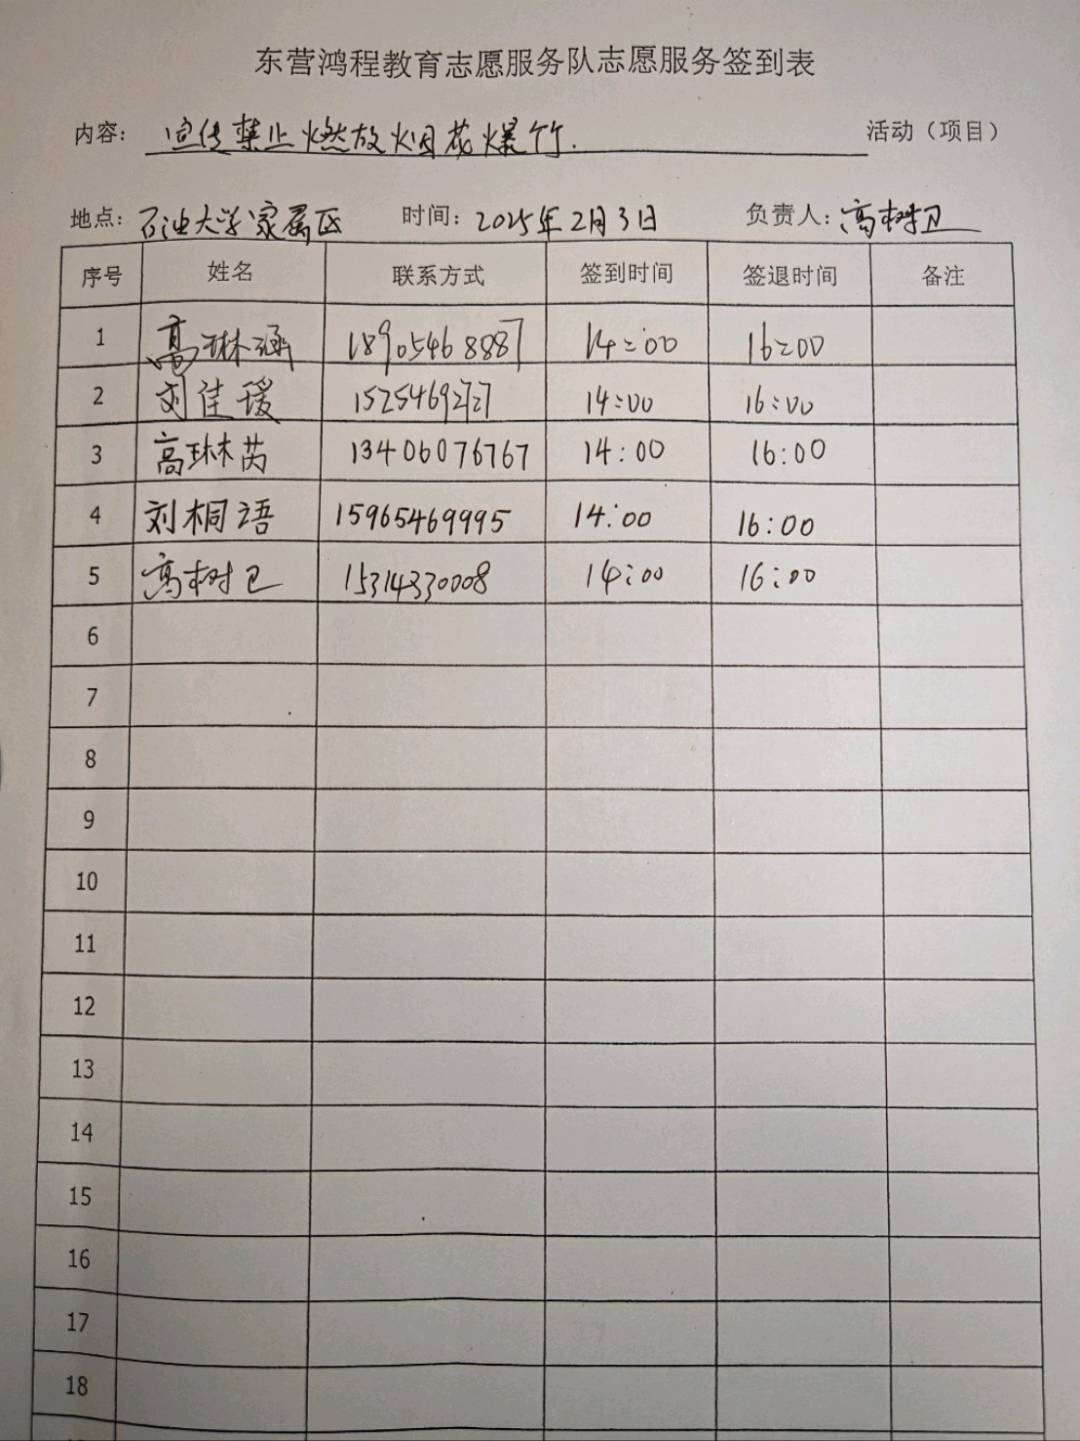 东营鸿程教育志愿服务队志愿服务签到表
内容: 宣传禁止燃放烟花爆竹. 活动（项目）
地点: 石油大学家属区 时间: 2025年2月3日 负责人: 高树卫
序号 姓名 联系方式 签到时间 签退时间 备注
1 高琳涵 18905468887 14:00 16:00
2 刘佳瑗 14:00 16:00
3 高琳芮 13406076767 14:00 16:00
4 刘桐语 15965469995 14:00 16:00
5 高树卫 15314330008 14:00 16:00
6
7
8
9
10
11
12
13
14
15
16
17
18